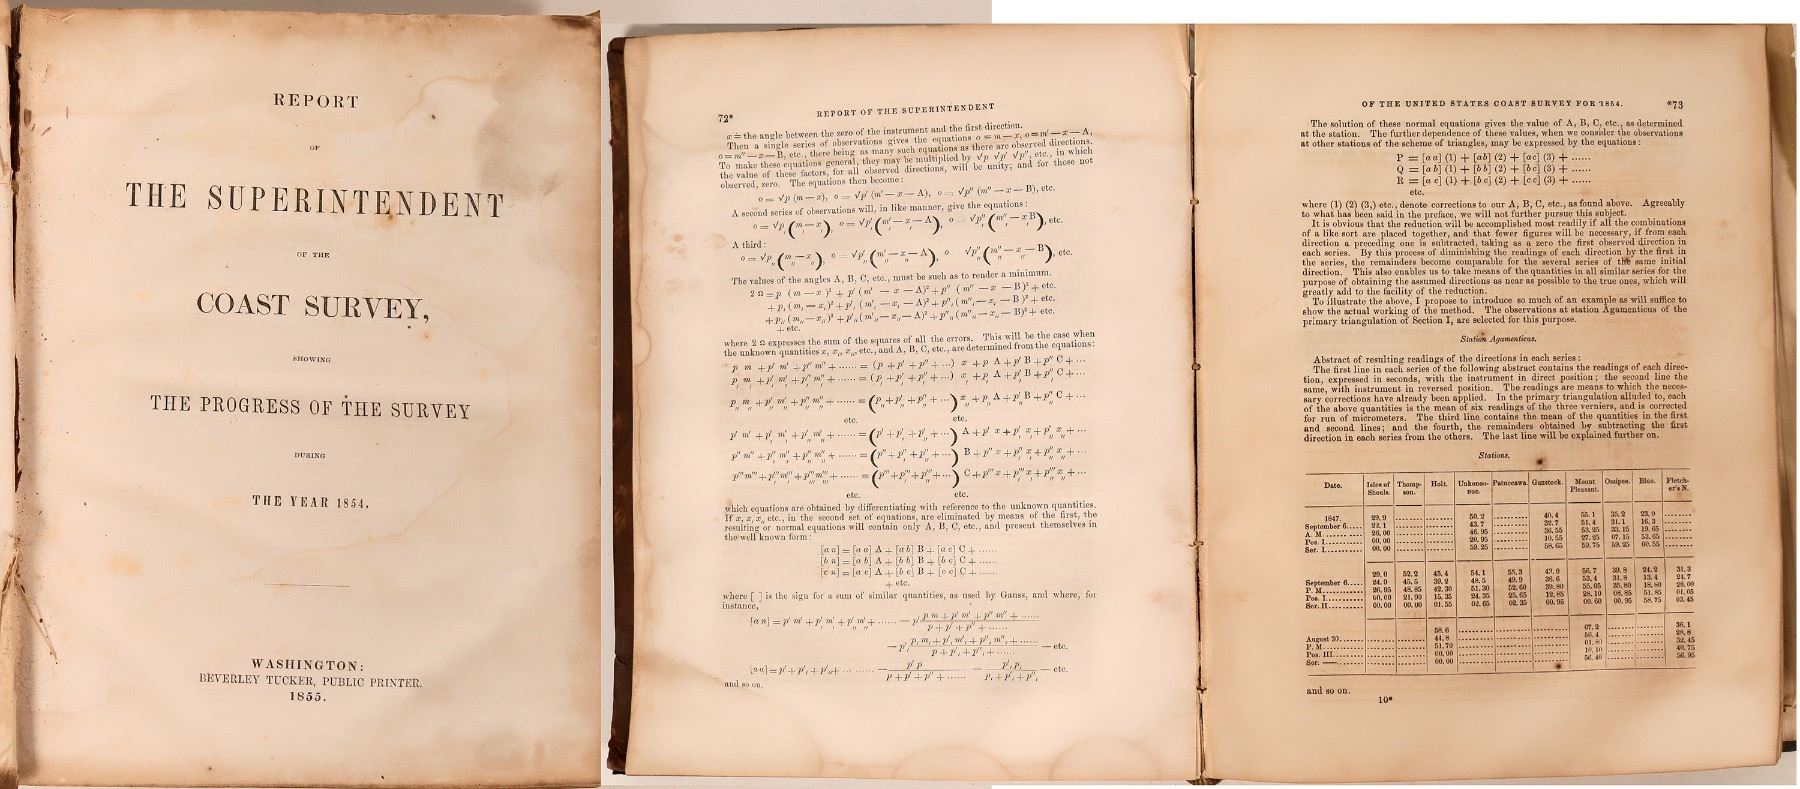 REPORT
OF
THE SUPERINTENDENT
OF THE
COAST SURVEY,
SHOWING
THE PROGRESS OF THE SURVEY
DURING
THE YEAR 1854.
WASHINGTON:
BEVERLEY TUCKER, PUBLIC PRINTER.
1855.
72* REPORT OF THE SUPERINTENDENT
x = the angle between the zero of the instrument and the first direction.
Then a single series of observations gives the equations o = m — x, o = m′ — x — A,
o = m″ — x — B, etc., there being as many such equations as there are observed directions.
To make these equations general, they may be multiplied by √p √p′ √p″, etc., in which
the value of these factors, for all observed directions, will be unity; and for those not
observed, zero. The equations then become:
o = √p (m — x), o = √p′ (m′ — x — A), o = √p″ (m″ — x — B), etc.
A second series of observations will, in like manner, give the equations:
A third:
The values of the angles A, B, C, etc., must be such as to render a minimum.
2 Ω = p (m — x)² + p′ (m′ — x — A)² + p″ (m″ — x — B)² + etc.
+ p, (m, — x,)² + p′, (m′, — x, — A)² + p″, (m″, — x, — B)² + etc.
+ p,, (m,, — x,,)² + p′,, (m′,, — x,, — A)² + p″,, (m″,, — x,, — B)² + etc.
+ etc.
where 2 Ω expresses the sum of the squares of all the errors. This will be the case when
the unknown quantities x, x,, x,,, etc., and A, B, C, etc., are determined from the equations:
p m + p′ m′ + p″ m″ + ...... = (p + p′ + p″ + ...) x + p A + p′ B + p″ C + ...
etc. etc.
etc. etc.
which equations are obtained by differentiating with reference to the unknown quantities.
If x, x, x,, etc., in the second set of equations, are eliminated by means of the first, the
resulting or normal equations will contain only A, B, C, etc., and present themselves in
the well known form:
[a n] = [a a] A + [a b] B + [a c] C + ......
[b n] = [a b] A + [b b] B + [b c] C + ......
[c n] = [a c] A + [b c] B + [c c] C + ......
+ etc.
where [ ] is the sign for a sum of similar quantities, as used by Gauss, and where, for
instance,
and so on.
OF THE UNITED STATES COAST SURVEY FOR 1854. *73
The solution of these normal equations gives the value of A, B, C, etc., as determined
at the station. The further dependence of these values, when we consider the observations
at other stations of the scheme of triangles, may be expressed by the equations:
P = [a a] (1) + [ab] (2) + [ac] (3) + ......
Q = [a b] (1) + [b b] (2) + [b c] (3) + ......
R = [a c] (1) + [b c] (2) + [c c] (3) + ......
etc.
where (1) (2) (3,) etc., denote corrections to our A, B, C, etc., as found above. Agreeably
to what has been said in the preface, we will not further pursue this subject.
It is obvious that the reduction will be accomplished most readily if all the combinations
of a like sort are placed together, and that fewer figures will be necessary, if from each
direction a preceding one is subtracted, taking as a zero the first observed direction in
each series. By this process of diminishing the readings of each direction by the first in
the series, the remainders become comparable for the several series of the same initial
direction. This also enables us to take means of the quantities in all similar series for the
purpose of obtaining the assumed directions as near as possible to the true ones, which will
greatly add to the facility of the reduction.
To illustrate the above, I propose to introduce so much of an example as will suffice to
show the actual working of the method. The observations at station Agamenticus of the
primary triangulation of Section I, are selected for this purpose.
Station Agamenticus.
Abstract of resulting readings of the directions in each series:
The first line in each series of the following abstract contains the readings of each direc-
tion, expressed in seconds, with the instrument in direct position; the second line the
same, with instrument in reversed position. The readings are means to which the neces-
sary corrections have already been applied. In the primary triangulation alluded to, each
of the above quantities is the mean of six readings of the three verniers, and is corrected
for run of micrometers. The third line contains the mean of the quantities in the first
and second lines; and the fourth, the remainders obtained by subtracting the first
direction in each series from the others. The last line will be explained further on.
Stations.
Date. Isles of Shoals. Thomp- son. Holt. Unkonoo- nuc. Patuccawa. Gunstock. Mount Pleasant. Ossipee. Blue. Fletch- er's N.
1847. 29.9 50.2 40.4 55.1 35.2 23.0
September 6..... 22.1 43.7 32.7 51.4 31.1 16.3
A. M. 26.00 46.95 36.55 53.25 33.15 19.65
Pos. I. 00.00 20.95 10.55 27.25 07.15 53.65
Ser. I. 00.00 59.25 58.65 59.75 59.25 00.55
29.0 52.2 45.4 54.1 55.3 43.0 56.7 39.8 24.2 31.3
September 6..... 24.9 45.5 39.2 48.5 49.9 36.6 53.4 31.8 13.4 24.7
P. M. 26.95 48.85 42.30 51.30 52.60 39.80 55.05 35.80 18.80 28.00
Pos. I. 00.00 21.90 15.35 24.35 25.65 12.85 28.10 08.85 51.85 01.05
Ser. II. 00.00 00.00 01.55 02.65 02.35 00.95 00.60 00.95 58.75 03.45
58.6 67.2 36.1
August 30. 44.8 56.4 28.8
P. M. 51.70 61.80 32.45
Pos. III. 00.00 10.10 40.75
Ser. — 00.00 56.40 56.95
and so on.
10*